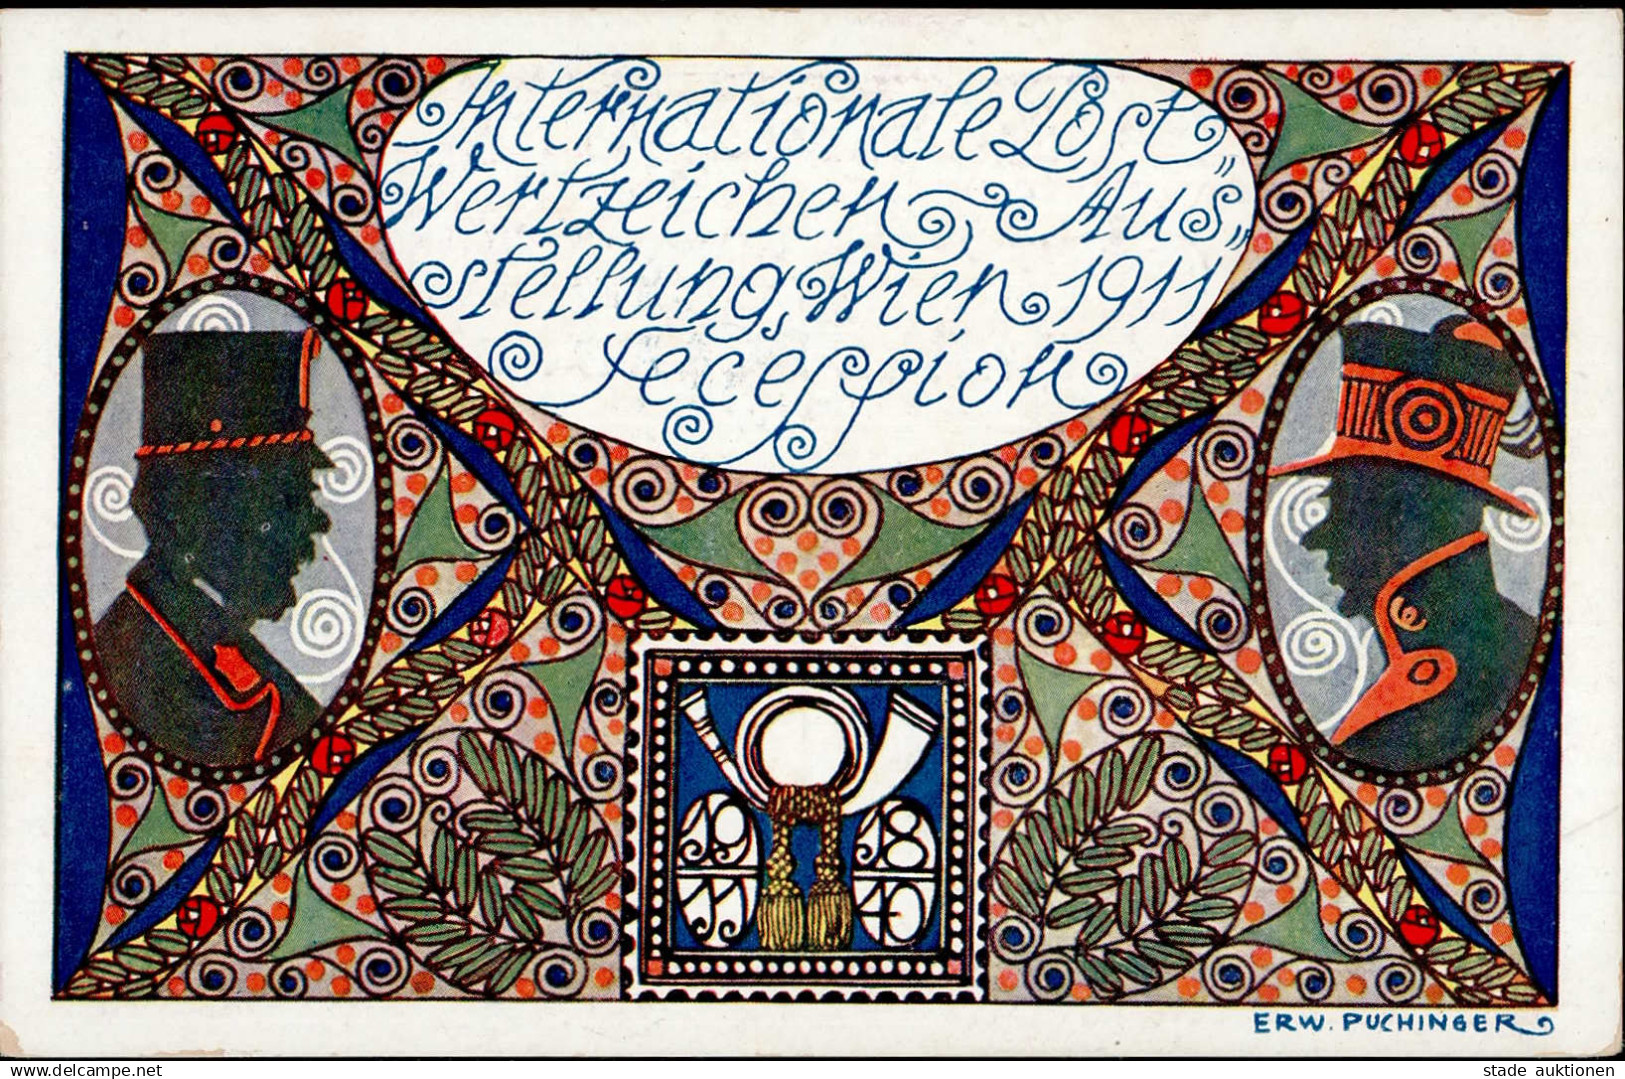 Internationale Post„
Wertzeichen-Aus„
stellung, Wien 1911
Secession
1911
1840
ERW. PUCHINGER
stade auktionen